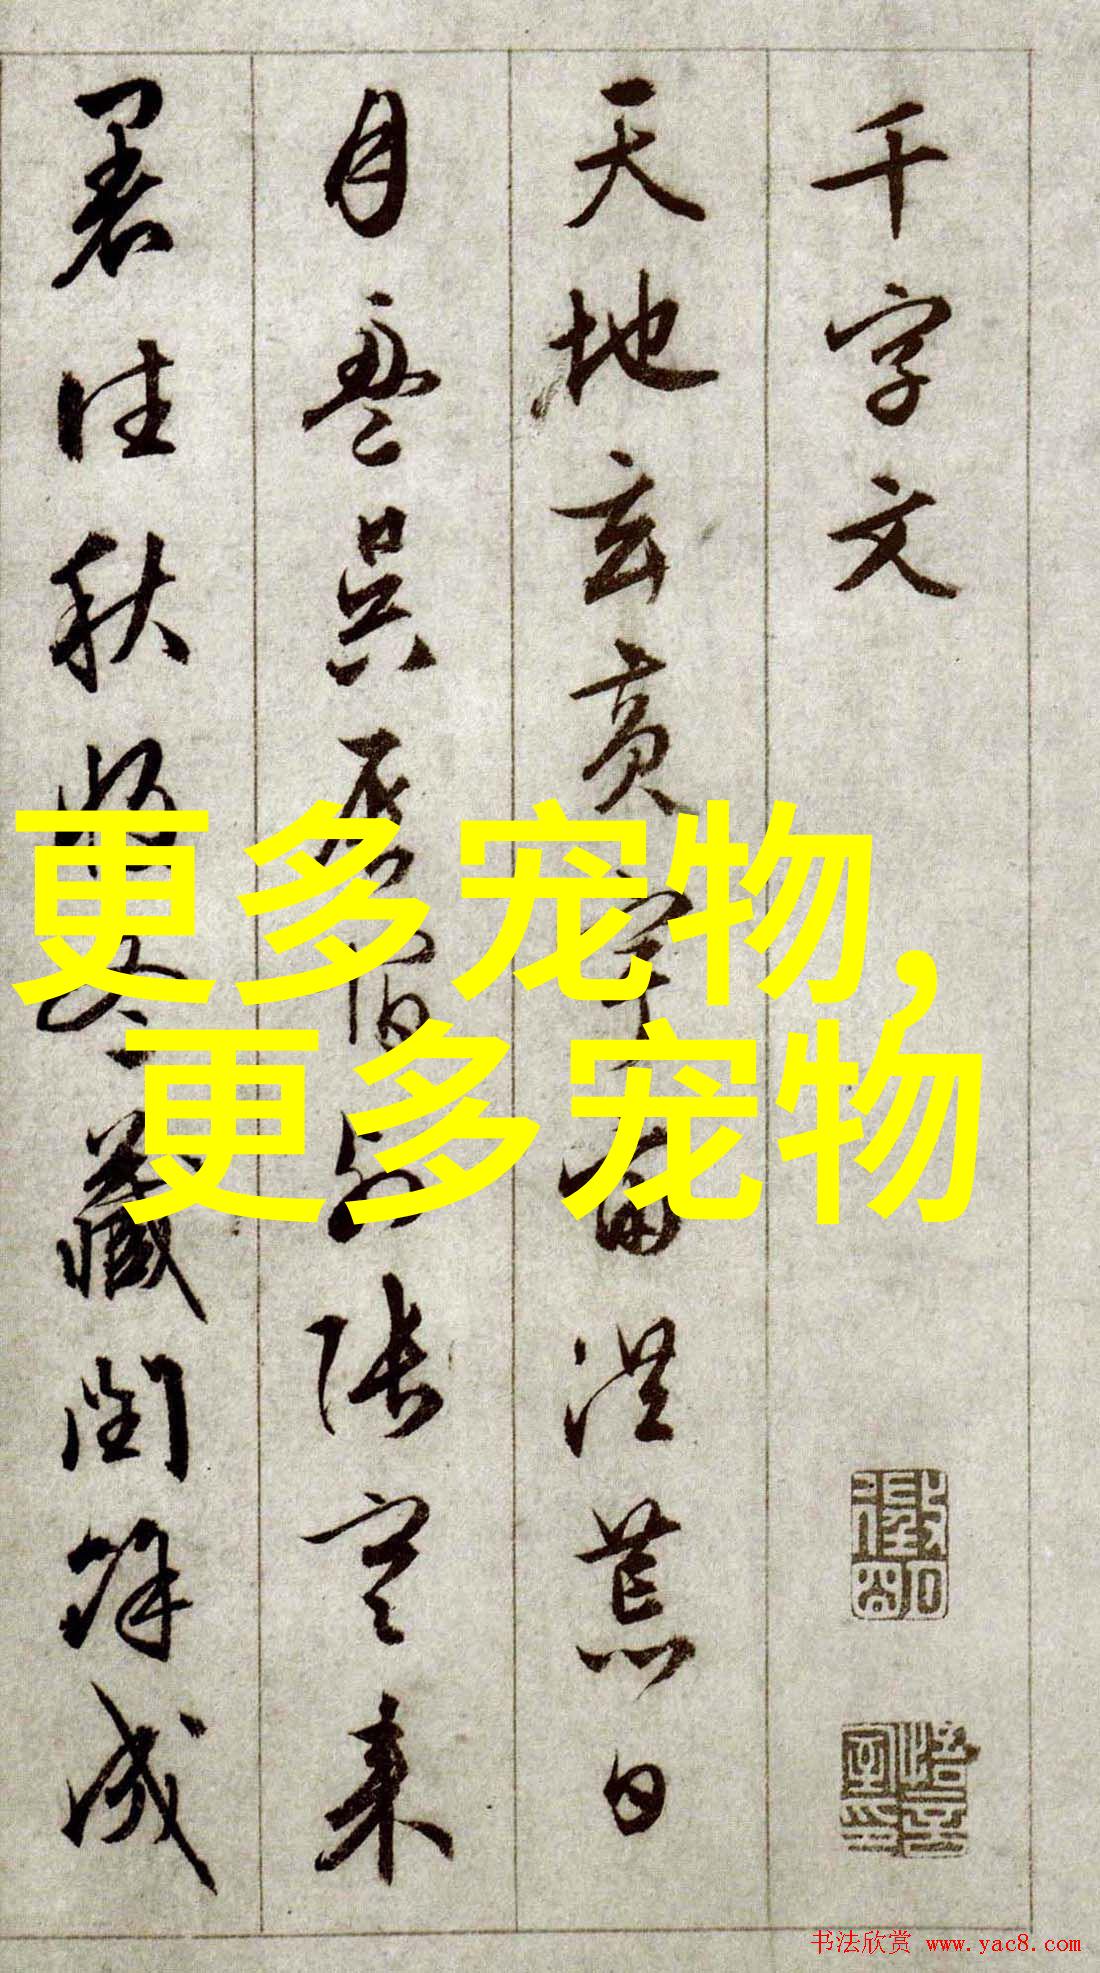 千字文
天地玄黄宇宙洪荒日
月盈昃辰宿列張寒来
暑往秋收冬藏閏餘成
更多宠物,
更多宠物
书法欣赏 www.yac8.com